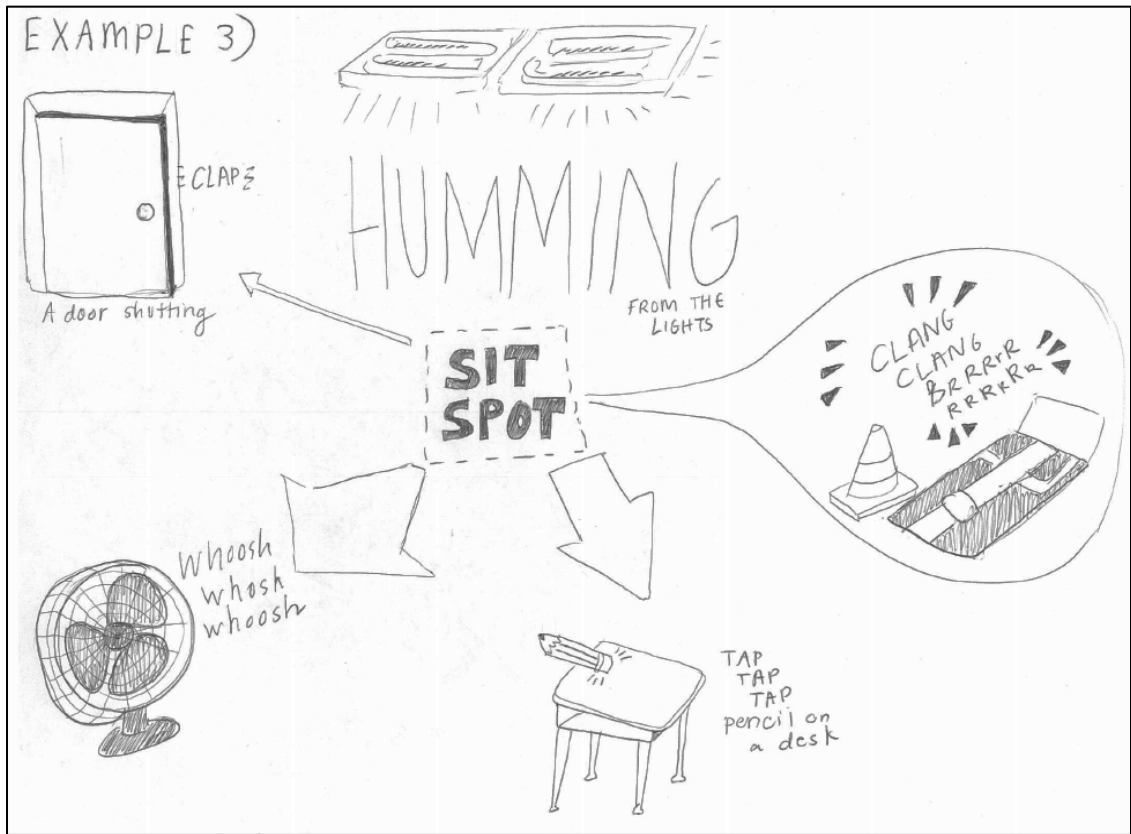 EXAMPLE 3)
CLAP
A door shutting
HUMMING
FROM THE
LIGHTS
SIT
SPOT
CLANG
CLANG
BRRRrR
RRRRRR
Whoosh
whosh
whoosh
TAP
TAP
TAP
pencil on
a desk